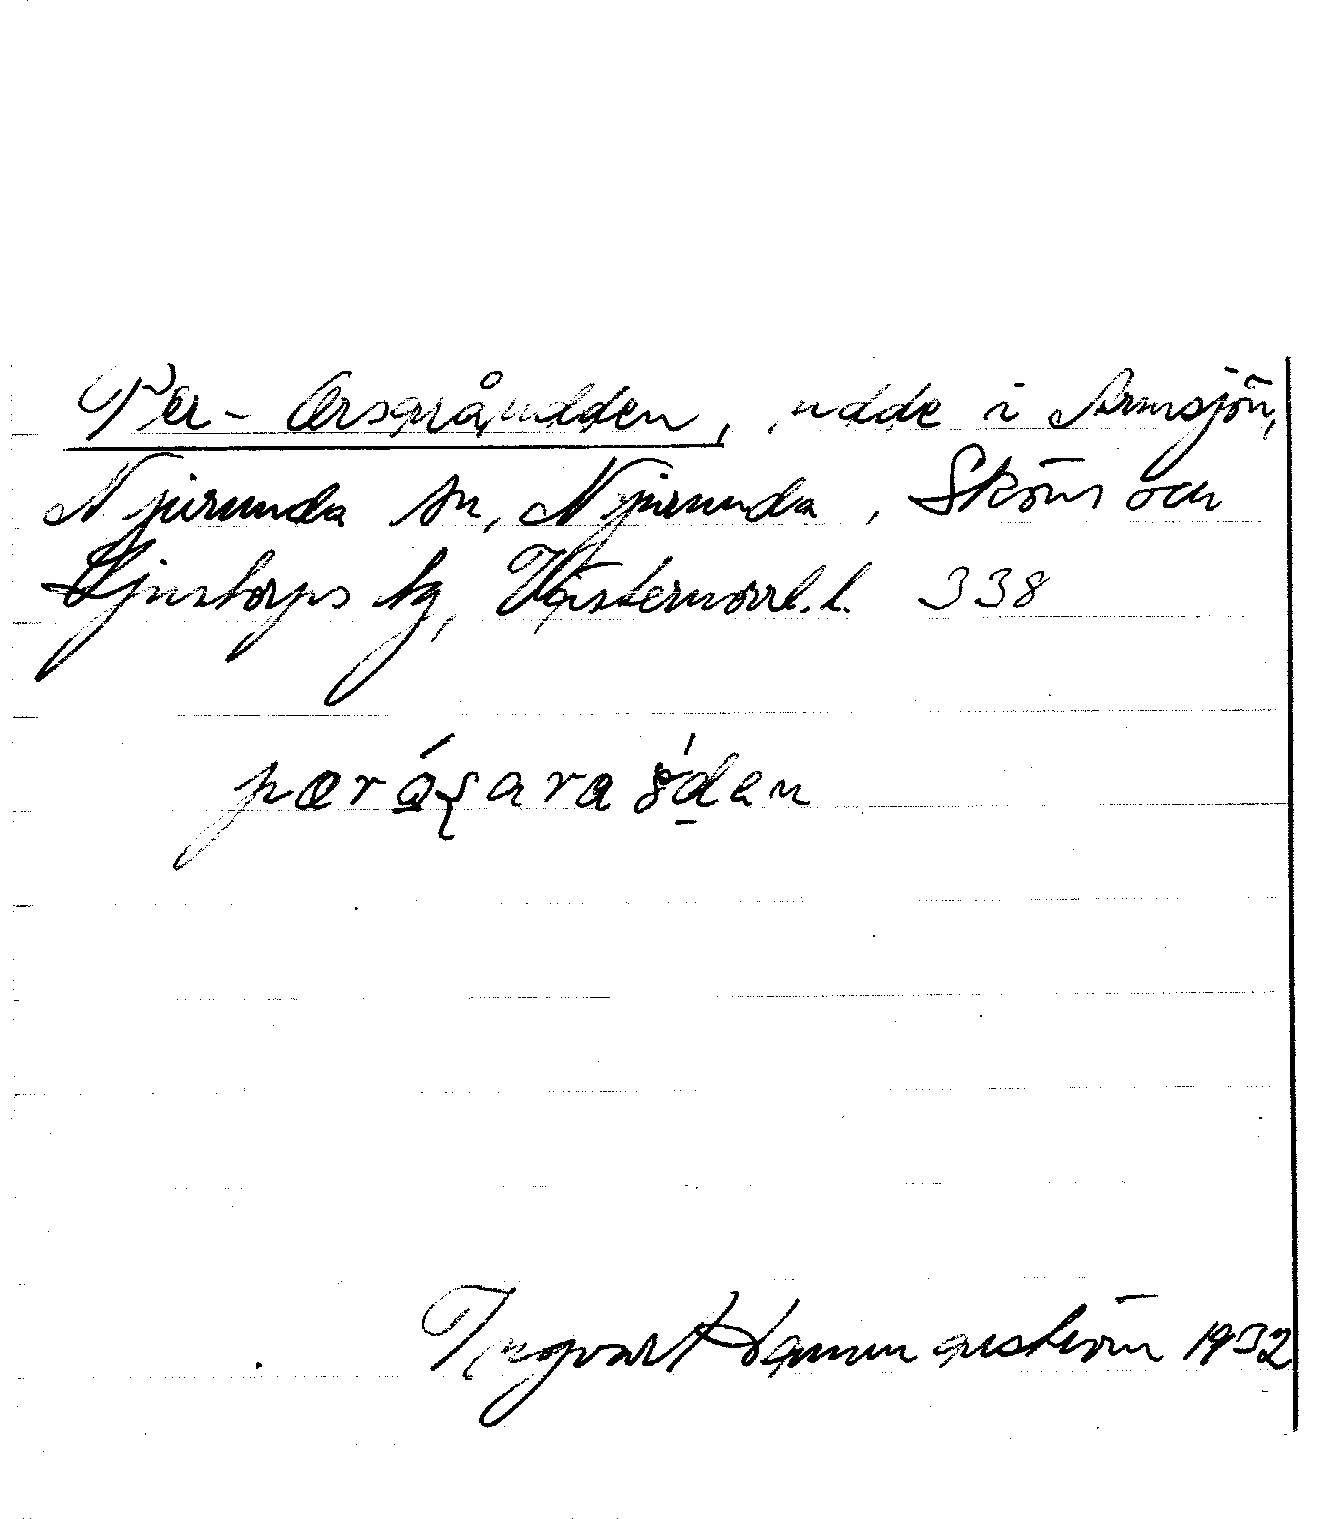 Per-Ersaråudden, udde i Armsjön,
Njurunda sn, Njurunda, Sköns och
Ljustorps tg, Västernorrl. l. 338
Ingvar Hammarström 1932